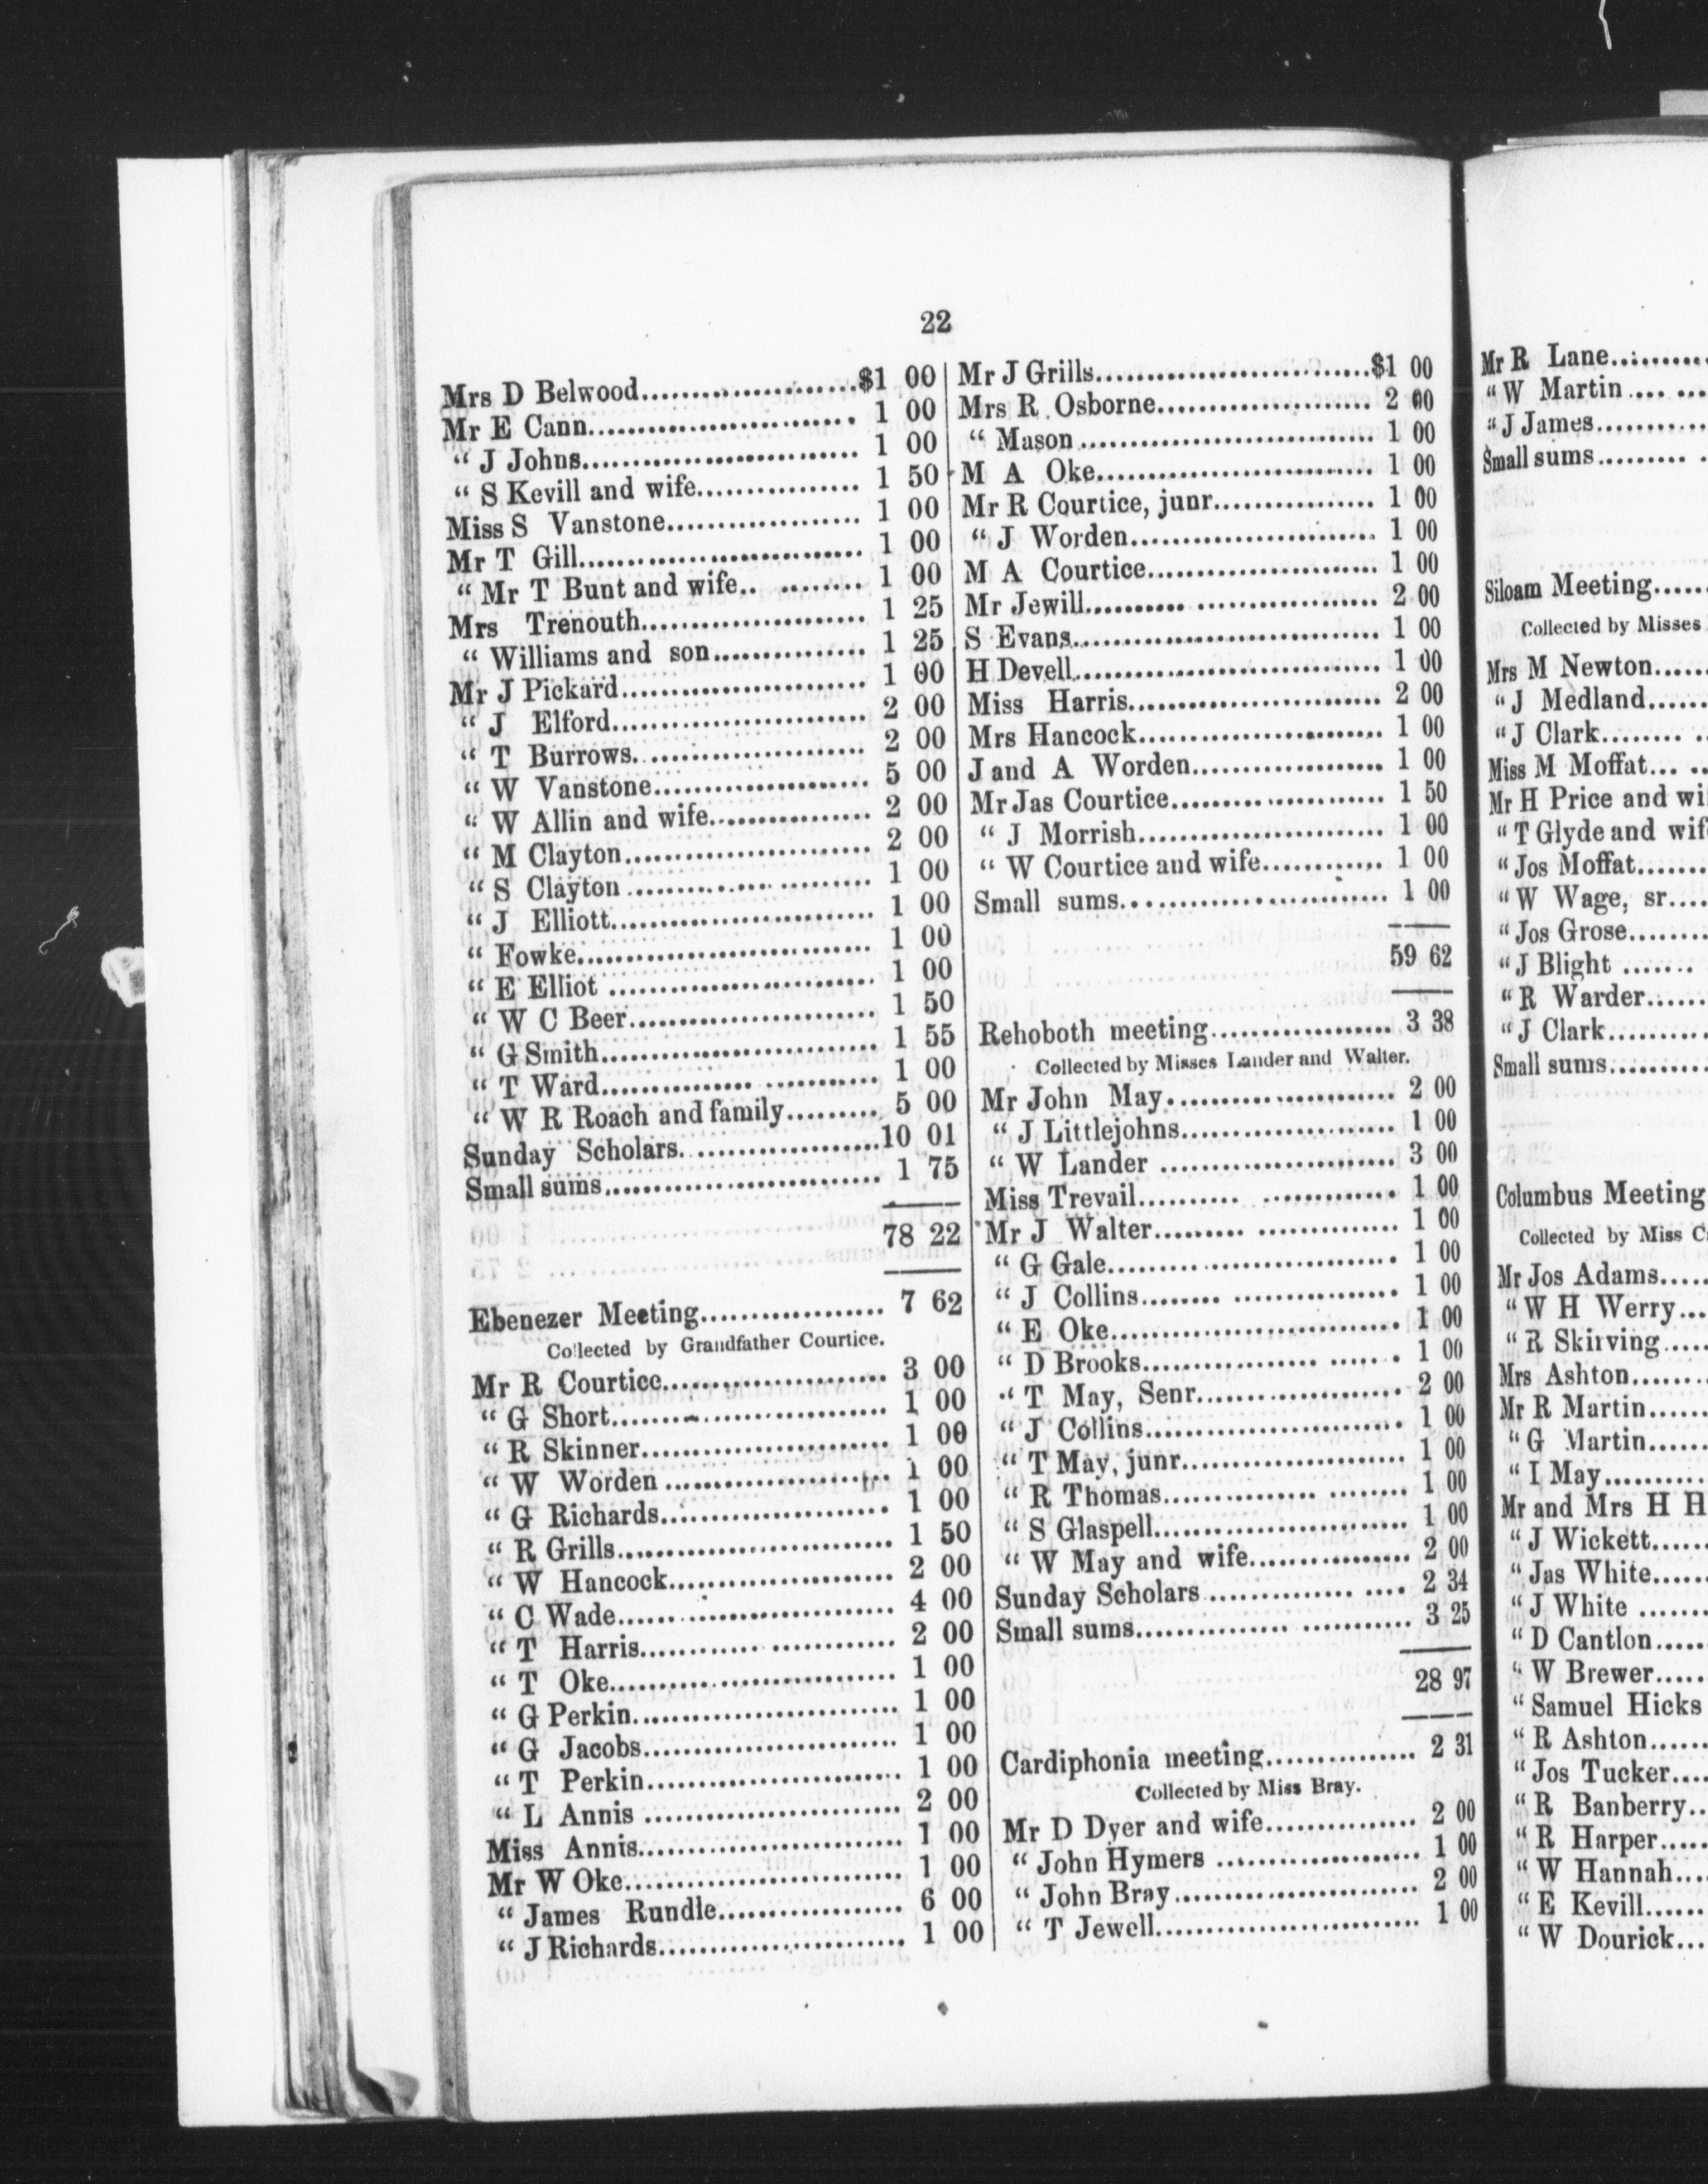 22
Mrs D Belwood........................$1 00
Mr E Cann........................ 1 00
“ J Johns........................ 1 00
“ S Kevill and wife................ 1 50
Miss S Vanstone................... 1 00
Mr T Gill........................ 1 00
“ Mr T Bunt and wife.. ......... 1 00
Mrs Trenouth...................... 1 25
“ Williams and son............... 1 25
Mr J Pickard........................ 1 00
“ J Elford........................ 2 00
“ T Burrows........................ 2 00
“ W Vanstone...................... 5 00
“ W Allin and wife................ 2 00
“ M Clayton........................ 2 00
“ S Clayton ........................ 1 00
“ J Elliott........................ 1 00
“ Fowke........................ 1 00
“ E Elliot ........................ 1 00
“ W C Beer........................ 1 50
“ G Smith........................ 1 55
“ T Ward............... ........... 1 00
“ W R Roach and family......... 5 00
Sunday Scholars...................10 01
Small sums........................ 1 75
78 22
Ebenezer Meeting.................. 7 62
Collected by Grandfather Courtice.
Mr R Courtice........................ 3 00
“ G Short........................ 1 00
“ R Skinner........................ 1 00
“ W Worden ........................ 1 00
“ G Richards...................... 1 00
“ R Grills........................ 1 50
“ W Hancock...................... 2 00
“ C Wade........................ 4 00
“ T Harris........... ............ 2 00
“ T Oke........................ 1 00
“ G Perkin........................ 1 00
“ G Jacobs........................ 1 00
“ T Perkin........................ 1 00
“ L Annis ........................ 2 00
Miss Annis........................ 1 00
Mr W Oke........................ 1 00
“ James Rundle.................. 6 00
“ J Richards........................ 1 00
Mr J Grills........................$1 00
Mrs R Osborne..................... 2 00
“ Mason ........................ 1 00
M A Oke........................ 1 00
Mr R Courtice, junr................ 1 00
“ J Worden........................ 1 00
M A Courtice...................... 1 00
Mr Jewill.......... .................. 2 00
S Evans........................ 1 00
H Devell........................ 1 00
Miss Harris........................ 2 00
Mrs Hancock........................ 1 00
J and A Worden................... 1 00
Mr Jas Courtice..................... 1 50
“ J Morrish........................ 1 00
“ W Courtice and wife............ 1 00
Small sums........................ 1 00
59 62
Rehoboth meeting.................. 3 38
Collected by Misses Lander and Walter.
Mr John May...................... 2 00
“ J Littlejohns..................... 1 00
“ W Lander ........................ 3 00
Miss Trevail.......... ............. 1 00
Mr J Walter......... .............. 1 00
“ G Gale........................ 1 00
“ J Collins........ ................ 1 00
“ E Oke........................ 1 00
“ D Brooks................. ..... . 1 00
“ T May, Senr..................... 2 00
“ J Collins........................ 1 00
“ T May, junr...................... 1 00
“ R Thomas............... ........ 1 00
“ S Glaspell........................ 1 00
“ W May and wife................ 2 00
Sunday Scholars............... .... 2 34
Small sums............... ........... 3 25
28 97
Cardiphonia meeting............... 2 31
Collected by Miss Bray.
Mr D Dyer and wife............... 2 00
“ John Hymers .................... 1 00
“ John Bray........................ 2 00
“ T Jewell........................ 1 00
Mr R Lane...........
“ W Martin .... ...
“ J James...........
Small sums......... .
Siloam Meeting.....
Collected by Misses
Mrs M Newton.....
“ J Medland......
“ J Clark........ .
Miss M Moffat... ..
Mr H Price and wi
“ T Glyde and wif
“ Jos Moffat.......
“ W Wage, sr....
“ Jos Grose........
“ J Blight .......
“ R Warder......
“ J Clark..........
Small sums..........
Columbus Meeting
Collected by Miss C
Mr Jos Adams.....
“ W H Werry...
“ R Skirving....
Mrs Ashton.......
Mr R Martin......
“ G Martin......
“ I May...........
Mr and Mrs H H
“ J Wickett......
“ Jas White......
“ J White .......
“ D Cantlon.....
“ W Brewer.....
“ Samuel Hicks
“ R Ashton......
“ Jos Tucker....
“ R Banberry..
“ R Harper.....
“ W Hannah...
“ E Kevill......
“ W Dourick...